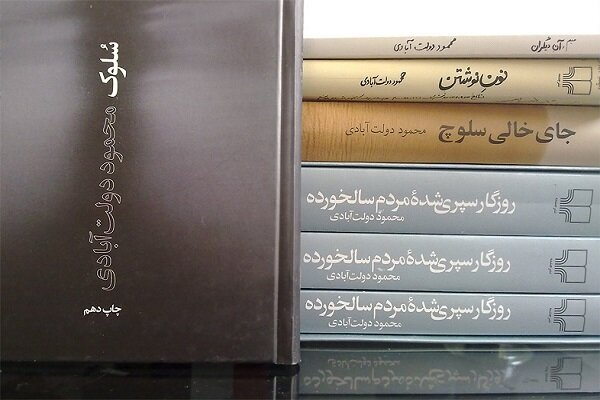 سُلوک
محمود دولت‌آبادی
چاپ دهم
میم و آن دیگران
محمود دولت‌آبادی
نون نوشتن
محمود دولت‌آبادی
جای خالی سلوچ
محمود دولت‌آبادی
روزگار سپری شدهٔ مردم سالخورده
محمود دولت‌آبادی
روزگار سپری شدهٔ مردم سالخورده
محمود دولت‌آبادی
روزگار سپری شدهٔ مردم سالخورده
محمود دولت‌آبادی